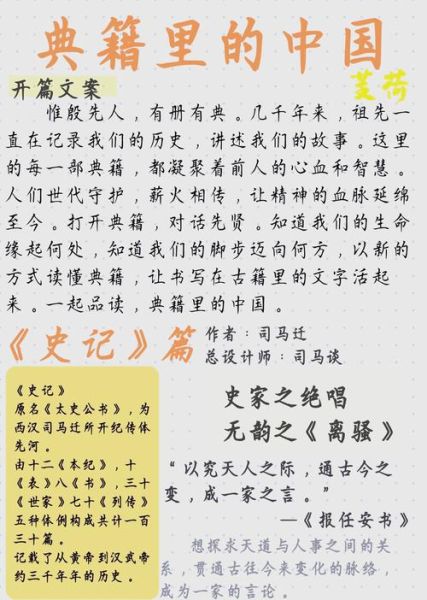 典籍里的中国
开篇文案
芰荷
惟殷先人，有册有典。几千年来，祖先一
直在记录我们的历史，讲述我们的故事。这里
的每一部典籍，都凝聚着前人的心血和智慧。
人们世代守护，薪火相传，让精神的血脉延绵
至今。打开典籍，对话先贤。知道我们的生命
缘起何处，知道我们的脚步迈向何方，以新的
方式读懂典籍，让书写在古籍里的文字活起
来。一起品读，典籍里的中国。
《史记》篇
作者：司马迁
总设计师：司马谈
《史记》
原名《太史公书》，为
西汉司马迁所开纪传体
先河。
由十二《本纪》，十
《表》八《书》，三十
《世家》七十《列传》
五种体例构成共计一百
三十篇。
记载了从黄帝到汉武帝
约三千年年的历史。
史家之绝唱
无韵之《离骚》
“以究天人之际，通古今之
变，成一家之言。”
—《报任安书》
想探求天道与人事之间的关
系，贯通古往今来变化的脉络，
成为一家的言论。